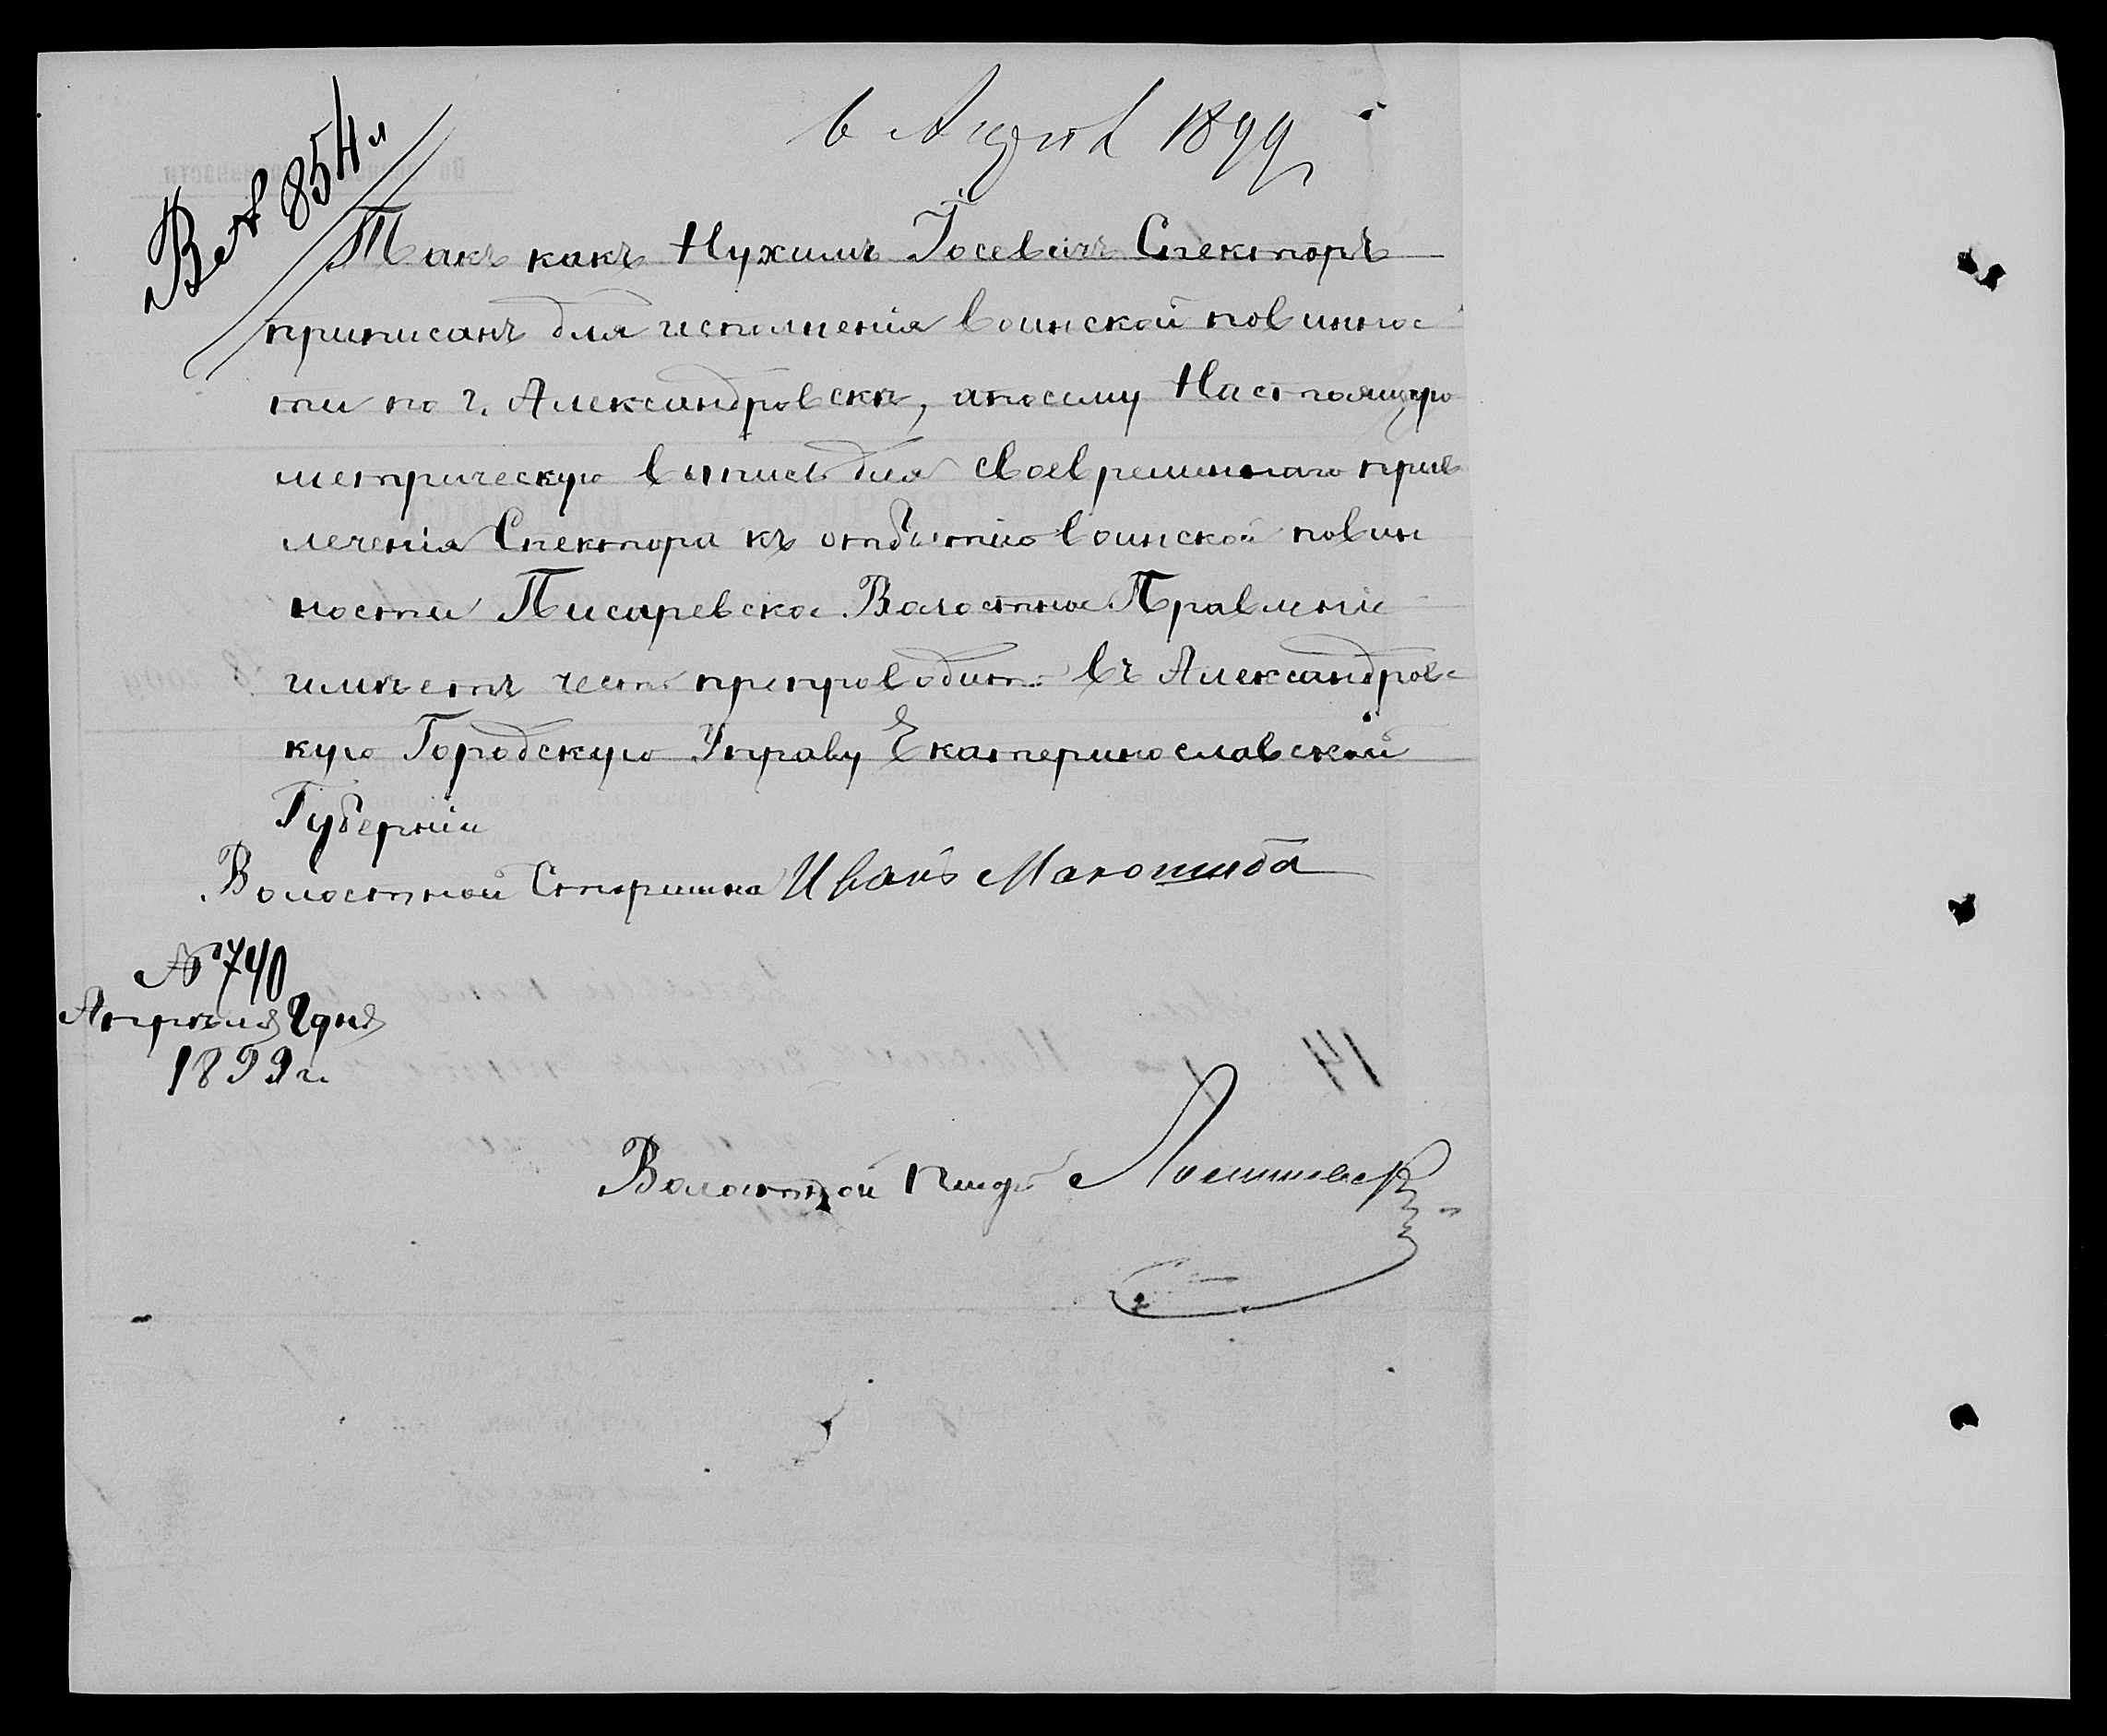 6 Апрѣл 1899
В. № 854
Такъ какъ Нухимъ Іосевичъ Спекторъ
приписанъ для исполненія воинской повиннос
ти по г. Александровску, апосему Настоящую
метрическую выпись для своевременнаго прив
леченія Спектора къ отбытію воинской повин
ности Писаревское Волостное Правленіе
имѣетъ честь препроводить въ Александровс
кую Городскую Управу Екатеринославской
Губерніи
Волостной Старшина Иванъ
№ 740
Апрѣля 2 дня
1899 г.
Волостной Писарь